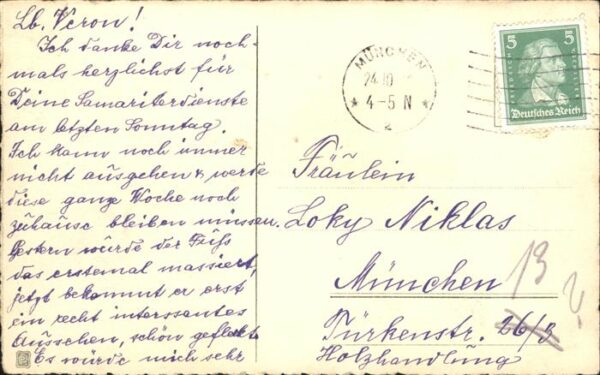 Lb. Veron!
Ich danke Dir noch-
mals herzlichst für
Deine Samariterdienste
am letzten Sonntag.
Ich kann noch immer
nicht ausgehen & werde
diese ganze Woche noch
zuhause bleiben müssen.
Gestern wurde der Fuß
das erstemal massiert,
jetzt bekommt er erst
ein recht interssantes
Aussehen, schön gefleckt.
Es würde mich sehr
MÜNCHEN
24.10
4-5 N
2
5 5
Deutsches Reich
Fräulein
Loky Niklas
München
13
Türkenstr. 26/3
?
Holzhandlung